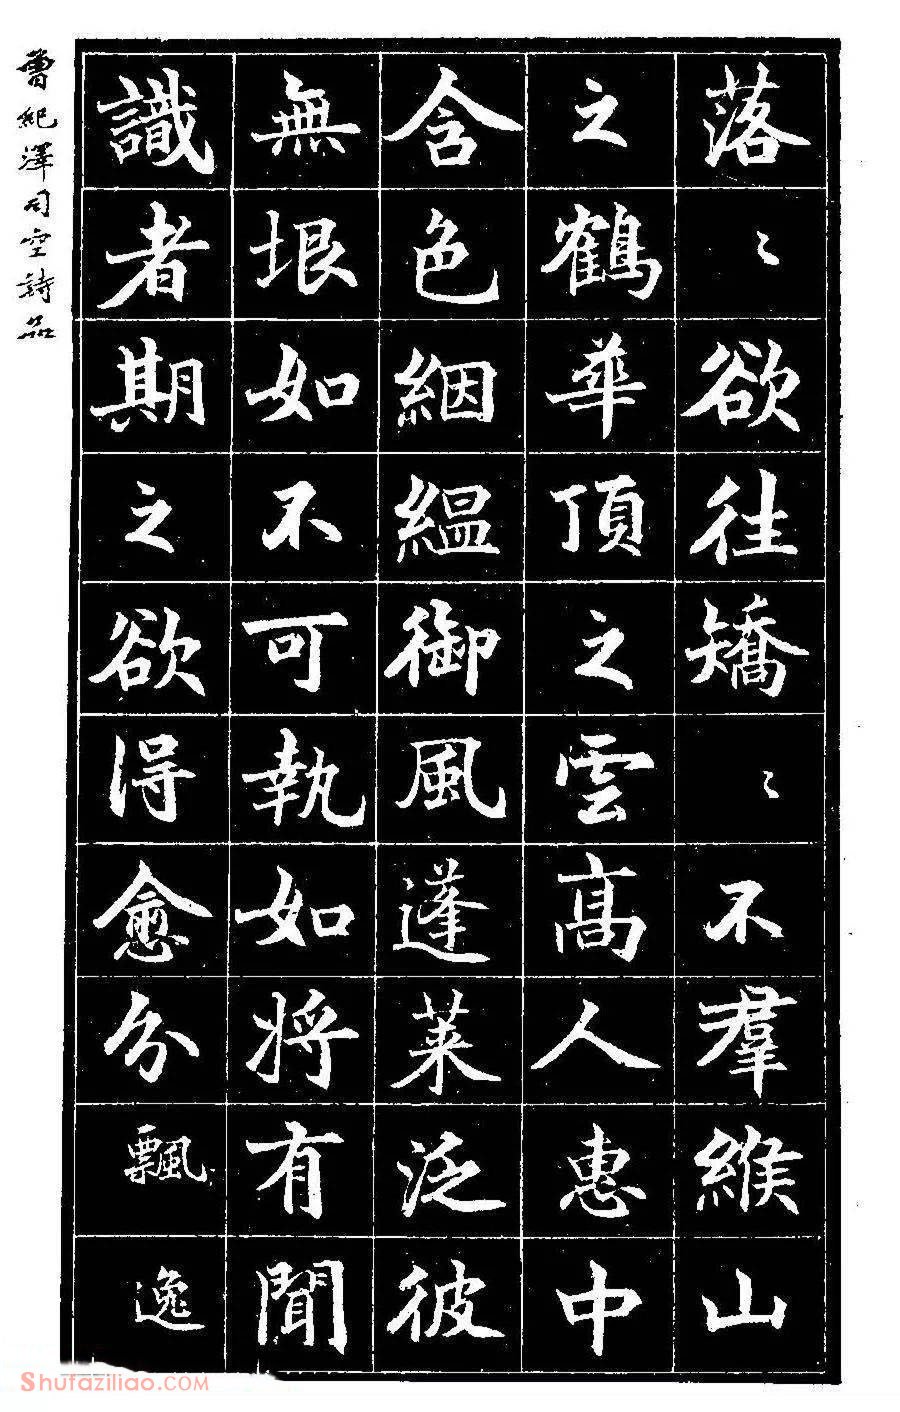 落〻欲往矯〻不羣緱山
之鶴華頂之雲高人惠中
含色絪緼御風蓬萊泛彼
無垠如不可執如將有聞
識者期之欲得愈分飄逸
曾紀澤司空詩品
Shufaziliao.COM